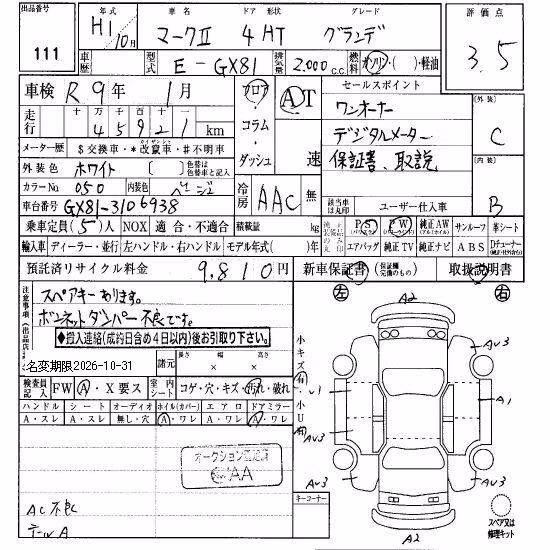 出品番号 年式 車名 ドア 形状 グレード 評価点
111 H1/10月 マークII 4HT グランデ 3.5
車歴 型式 E-GX81 排気量 2.000c.c. 燃料 ガソリン・( )・軽油
車検 R9年 1月 フロア・コラム・ダッシュ AT 速 セールスポイント 外装 C
走行 十万千百十一
45921km
ワンオーナー
メーター歴 $交換車・*改意車・#不明車
デジタルメーター
外装色 ホワイト ( ) 色替は色替車と記入
保証書、取説
内装 B
カラーNo 050 内装色 ベージュ
冷房 AAC 無 該当車は丸印 ユーザー仕入車
車台番号 GX81-3106938
乗車定員(5)人 NOX 適合・不適合 積載量 kg PS PW 純正AW サンルーフ 革シート
輸入車 ディーラー・並行 左ハンドル・右ハンドル モデル年式( )年 エアバッグ 純正TV 純正ナビ ABS Dチューナー
預託済リサイクル料金 9,810円 新車保証書(保証欄の完備のもの) 取扱説明書
注意事項(出品店)
スペアキーあります。
ボンネットダンパー不良です。
◆搬入連絡(成約日含め4日以内)後お引取り下さい。
名変期限2026-10-31 諸元 長さ 幅 高さ
× ×
検査員記入 FW A・X要ス 室内シート コゲ・穴・キズ・汚れ・破れ
ハンドル シート オーディオ ホイル(カバー) エアロ ドアミラー
A・スレ A・スレ 無し・穴 A・ワレ A・ワレ A・ワレ
オークション
AA
AC不良
テールA
左 右
小キズ有
小U有
A2
AV3
A1
AV3
AV3
AV3
A2
キーコーナー
スペア又は修理キット